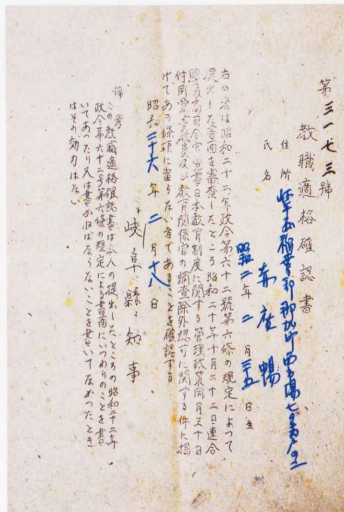 第三一七三號
教職適格確認書
住所 稲葉郡那加町
氏名 赤座 暢
昭和 二年 二月 日生
右の者は昭和二十二年政令第六十二號第六條の規定によつて
提出した書面を審査したところ昭和二十年十月二十二日連合
國最高司令官覺書日本教育制度に関する管理政策同月三十日
付同覺書教員及び教育関係官の調査除外認可に関する件に掲
げてある條項に當らない者であることを確認する
昭和 二十六年 二月 十八日
岐阜縣知事
備考
この教職適格確認書は本人の提出したところの昭和二十二年
政令第六十二号第六條の規定による書面にいつわりのことを書
いてあつたり又は書かねばならないことを書いてなかつたとき
はその効力はない